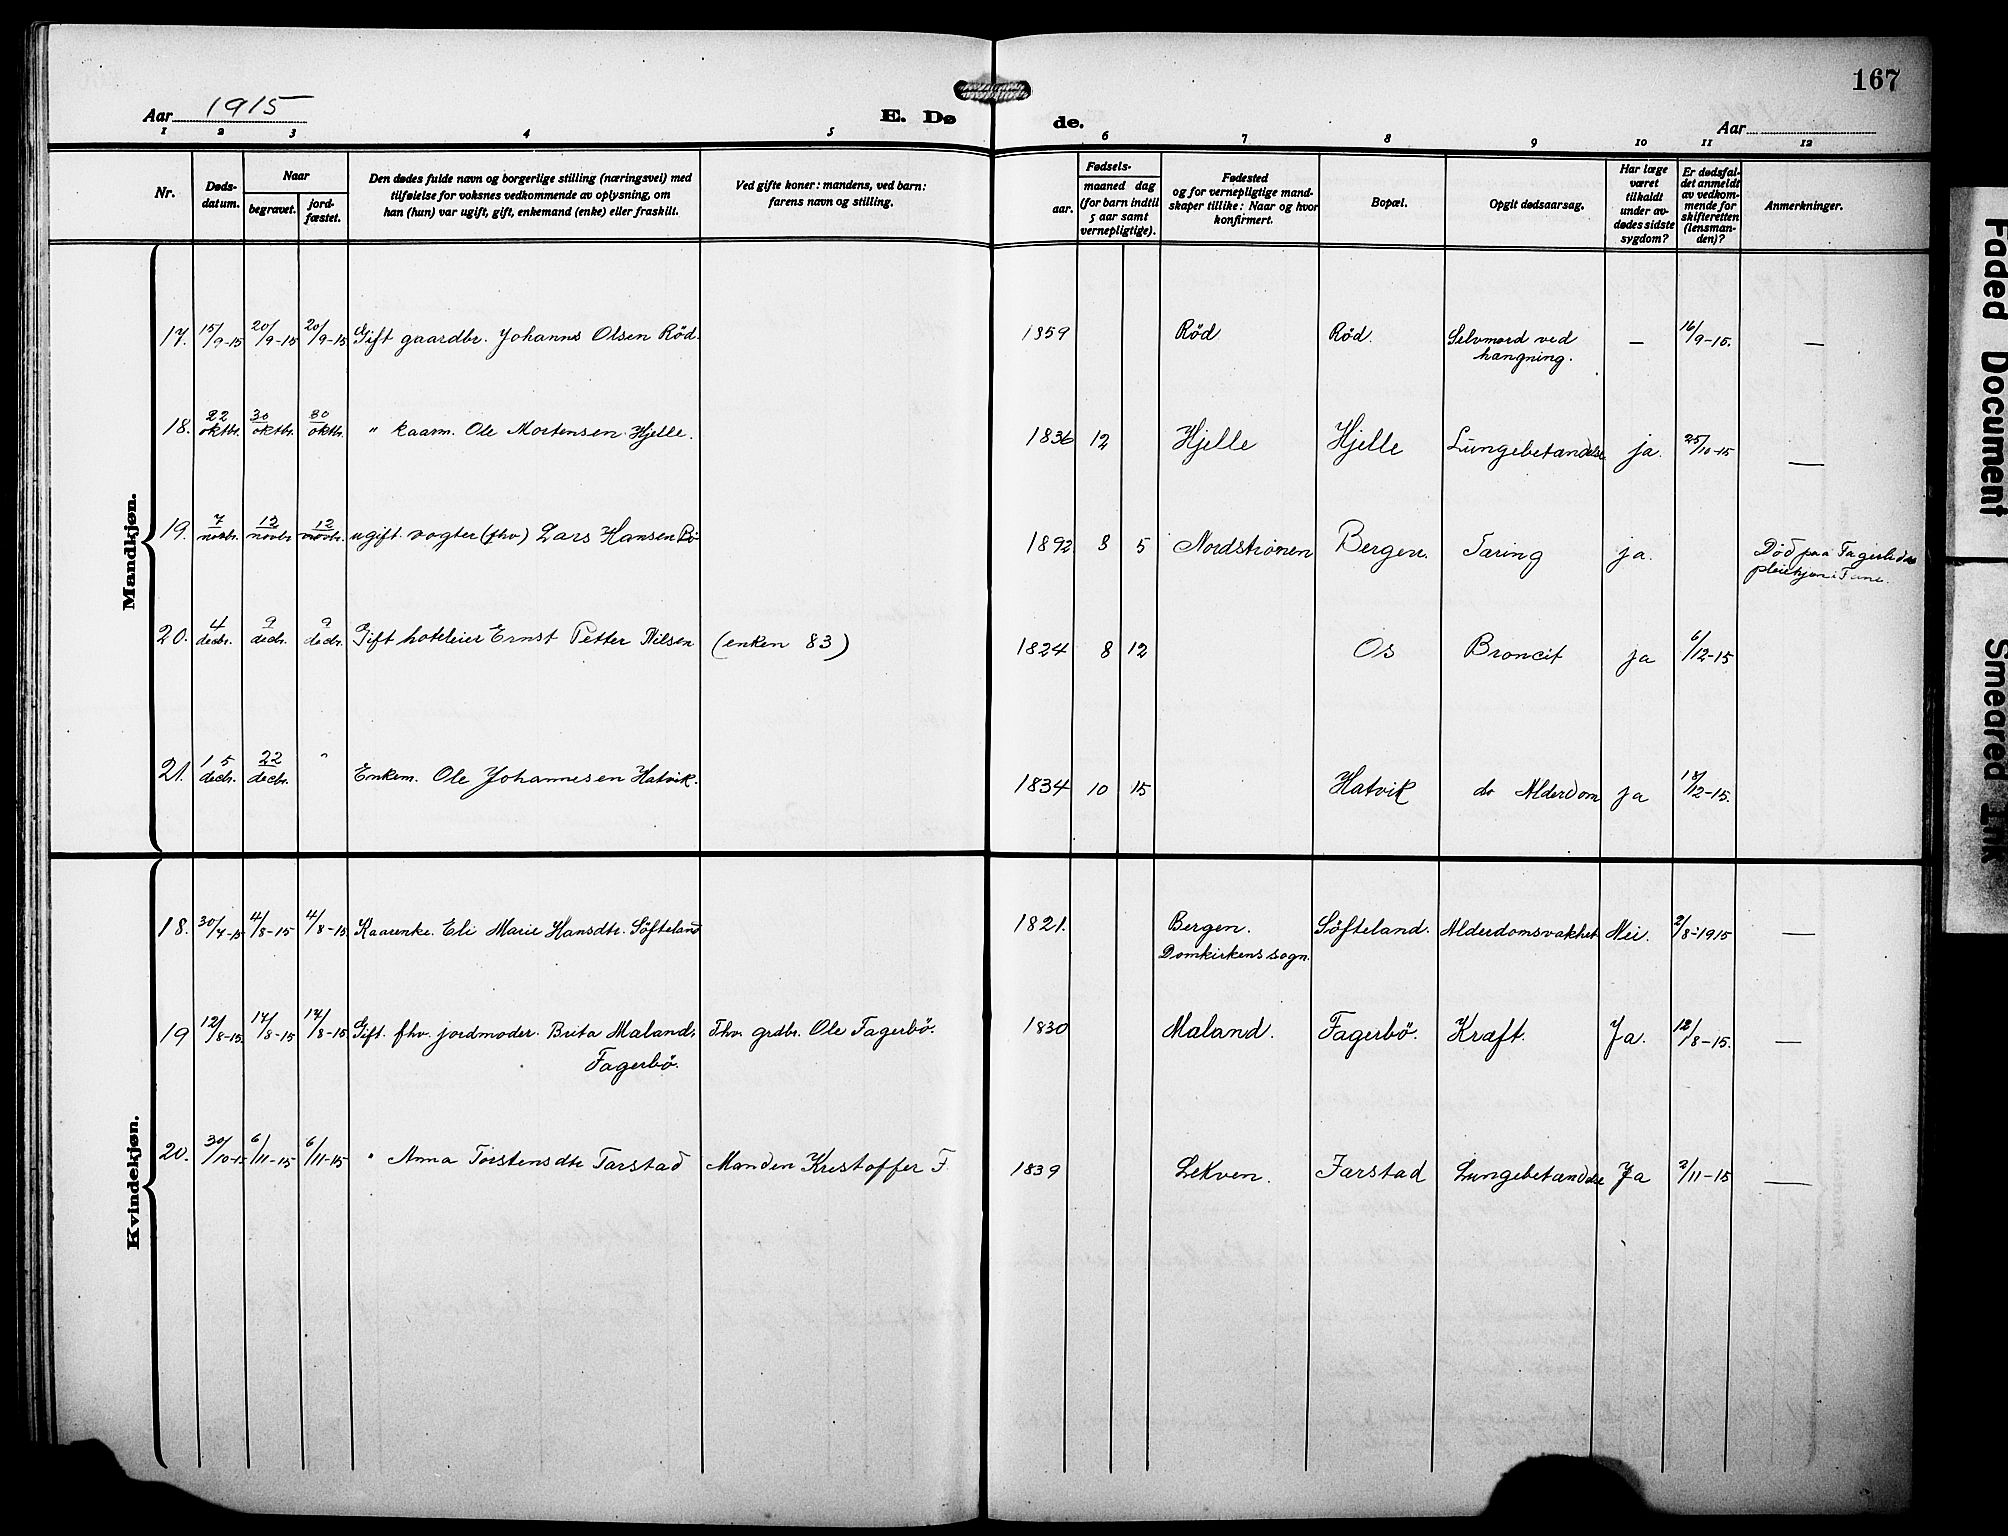 167
Aar 1915
E. Dø
de.
Aar
1 2 3 4 5 6 7 8 9 10 11 12
Nr.
Døds-
datum.
Naar
begravet.
jord-
fæstet.
Den dødes fulde navn og borgerlige stilling (næringsvei) med
tilføielse for voksnes vedkommende av oplysning, om
han (hun) var ugift, gift, enkemand (enke) eller fraskilt.
Ved gifte koner: mandens, ved barn:
farens navn og stilling.
Fødsels-
aar.
maaned dag
(for barn indtil
5 aar samt
vernepligtige).
Fødested
og for vernepligtige mand-
skaper tillike: Naar og hvor
konfirmert.
Bopæl.
Opgit dødsaarsag.
Har læge
været
tilkaldt
under av-
dødes sidste
sygdom?
Er dødsfal-
det anmeldt
av vedkom-
mende for
skifteretten
(lensman-
den)?
Anmerkninger.
Mandkjøn.
17. 15/9-15 20/9-15 20/9-15 Gift gaardbr. Johannes Olsen Rød. 1859 Rød Rød. Selvmord ved 16/9-15. —
hængning.
18. 22 oktbr. 30 oktbr. 30 oktbr. " kaarm. Ole Mortensen Hjelle. 1836 12 Hjelle Hjelle Lungebetændelse ja. 25/10-15 —
19. 7 novbr. 12 novbr. 12 novbr. ugift. vogter (fhv) Lars Hansen 1892 8 5 Nordstrønen Bergen. Tæring ja. Død paa
pleiehjem i
20. 4 decbr. 9 decbr. 9 decbr. Gift hoteleier Ernst Petter Nilsen (enken 83) 1824 8 12 Os Broncit ja 6/12-15
21. 15 decbr. 22 decbr. " Enkem. Ole Johannesen Hatvik. 1834 10 15 Hatvik do Alderdom ja 18/12-15.
Kvindekjøn.
18. 30/7-15 4/8-15 4/8-15 Kaarenke. Eli Marie Hansdtr. Söfteland 1821. Bergen. Söfteland. Alderdomsvakhet Nei. 2/8-1915 —
Domkirkens sogn.
19 12/8-15. 17/8-15 17/8-15. Gift. fhv. jordmoder. Brita Maland. Fhv. grdbr. Ole Fagerbö. 1830 Maland. Fagerbö. Kræft. Ja. 12/8-15. —
Fagerbö.
20. 30/10-15 6/11-15 6/11-15 " Anna Torstensdtr Farstad Manden Kristoffer F. 1839 Lekven. Farstad Lungebetændelse Ja 2/11-15 —
Faded Document
Smeared Ink